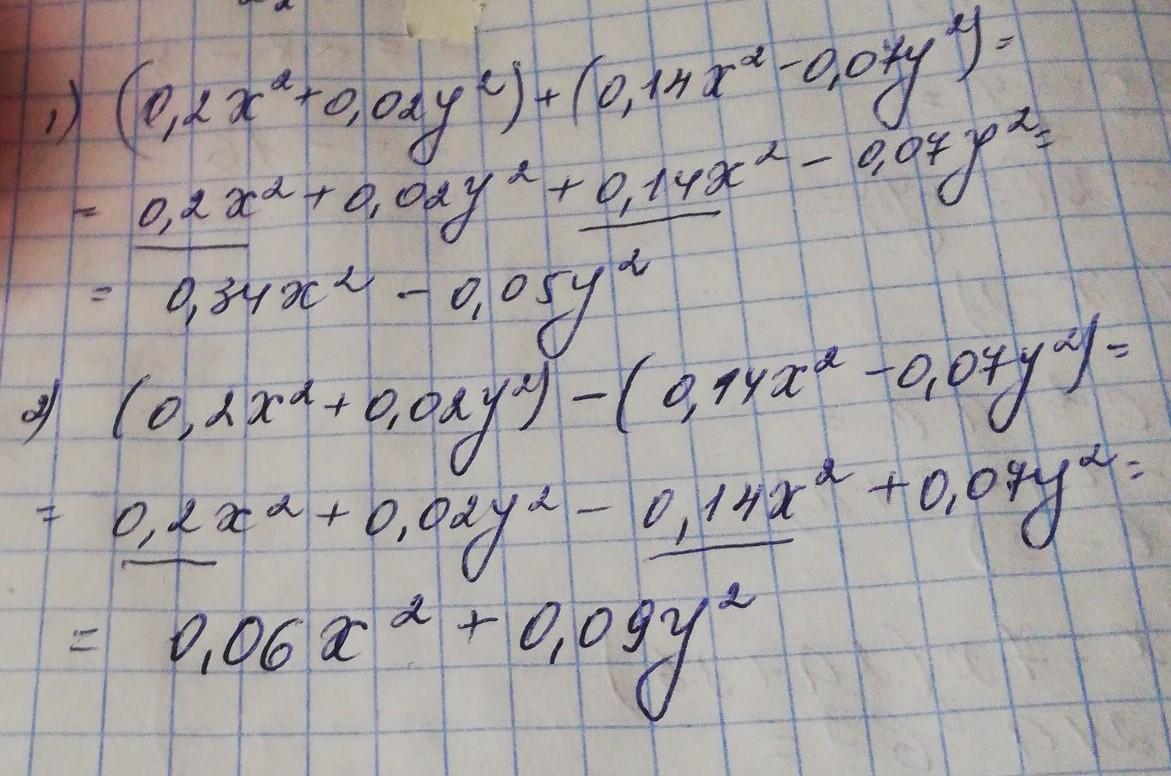 1) (0,2x²+0,02y²)+(0,14x²-0,07y²)=
= 0,2x²+0,02y²+0,14x²-0,07y²=
= 0,34x²-0,05y²
2) (0,2x²+0,02y²)-(0,14x²-0,07y²)=
= 0,2x²+0,02y²-0,14x²+0,07y²=
= 0,06x²+0,09y²